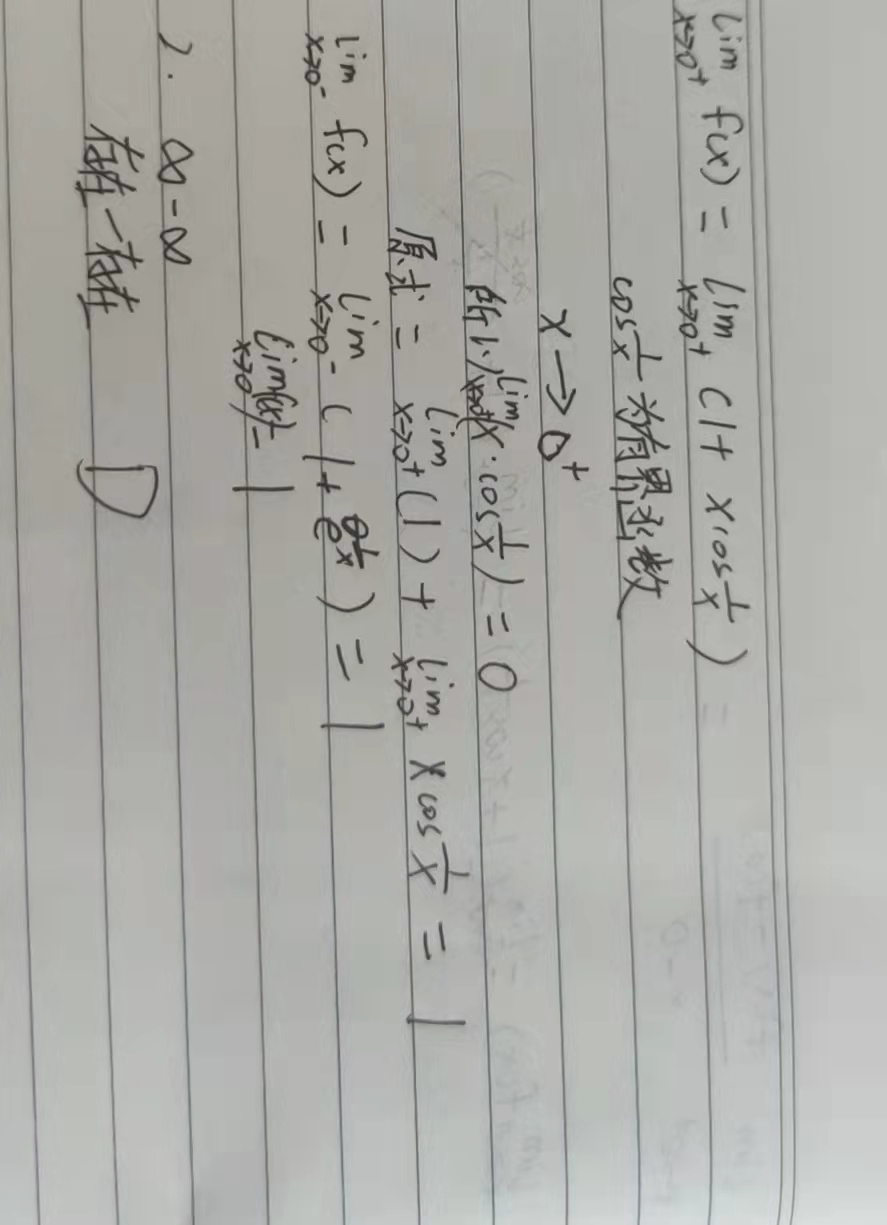 lim x→0⁺ f(x) = lim x→0⁺ (1+ xcos 1/x) =
cos 1/x 为有界函数
x → 0⁺
所以 lim x→0⁺ (x·cos 1/x) = 0
原式 = lim x→0⁺ (1) + lim x→0⁺ x cos 1/x = 1
lim x→0⁻ f(x) = lim x→0⁻ (1+ e^(1/x)) = 1
lim x→0 f(x) = 1
). ∞-∞
存在-存在 D